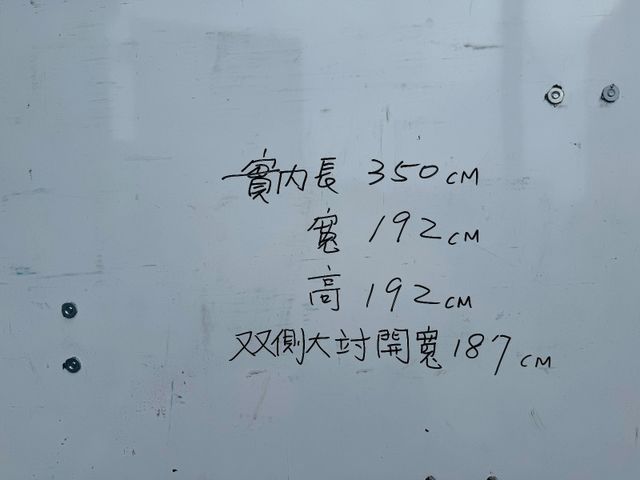 實內長 350CM
寬 192CM
高 192CM
双側大対開寬187CM